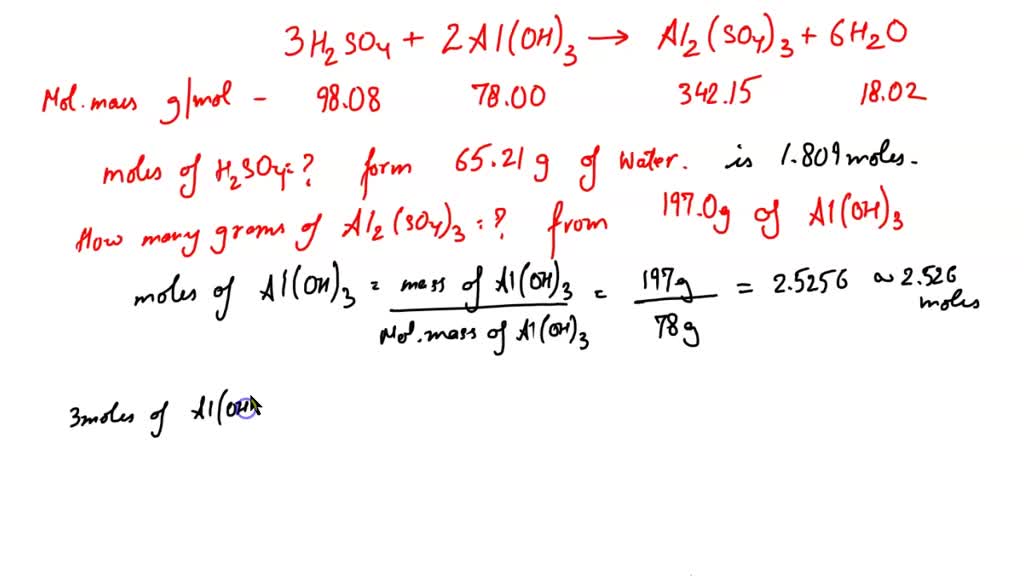 3H₂SO₄ + 2Al(OH)₃ → Al₂(SO₄)₃ + 6H₂O
Mol. mass g/mol - 98.08 78.00 342.15 18.02
moles of H₂SO₄ = ? form 65.21 g of water. is 1.809 moles.
How many grams of Al₂(SO₄)₃ = ? from 197.0g of Al(OH)₃
moles of Al(OH)₃ = mass of Al(OH)₃ / Mol. mass of Al(OH)₃ = 197g / 78g = 2.5256 ~ 2.526 moles
3moles of Al(OH